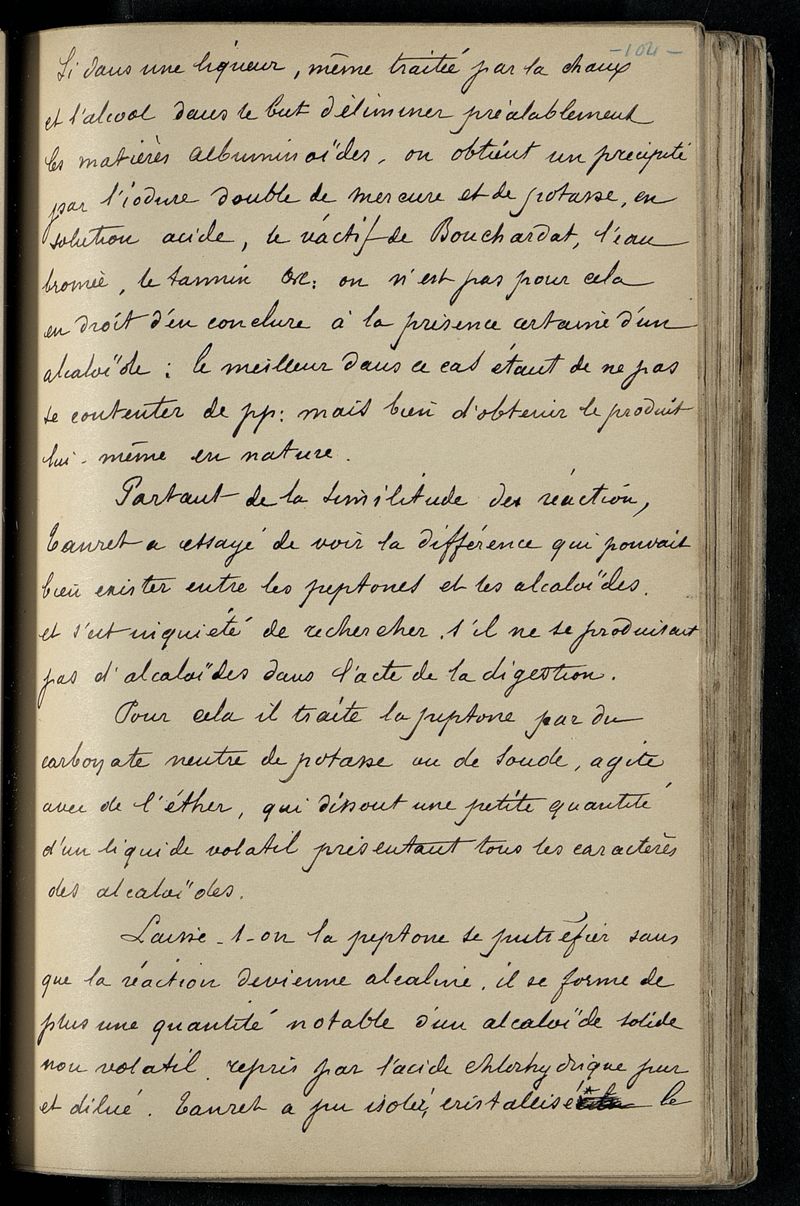 -104-
Si dans une liqueur, même traitée par la chaux
et l'alcool dans le but d'éliminer préalablement
les matières albuminoïdes, on obtient un précipité
par l'iodure double de mercure et de potasse, en
solution acide, le réactif de Bouchardat, l'eau
bromée, le tannin &c: on n'est pas pour cela
en droit d'en conclure à la présence certaine d'un
alcaloïde ; le meilleur dans ce cas étant de ne pas
se contenter de pp: mais bien d'obtenir le produit
lui-même en nature.
Partant de la similitude des réaction,
Tanret a essayé de voir la différence qui pouvait
bien exister entre les peptones et les alcaloïdes.
et s'est inquiété de rechercher, s'il ne se produisait
pas d'alcaloïdes dans l'acte de la digestion.
Pour cela il traite la peptone par du
carbonate neutre de potasse ou de soude, agite
avec de l'éther, qui dissout une petite quantité
d'un liquide volatil présentant tous les caractères
des alcaloïdes.
Laisse-t-on la peptone se putréfier sans
que la réaction devienne alcaline, il se forme de
plus une quantité notable d'un alcaloïde solide
non volatil, repris par l'acide chlorhydrique pur
et dilué. Tanret a pu isoler, cristallisé le